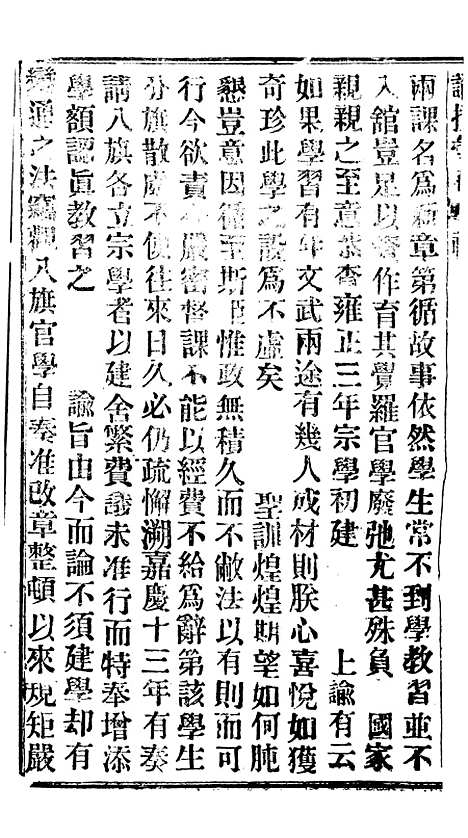 兩課名爲定章第循故事依然學生常不到學教習並不
入館豈足以當作育其覺羅官學廢弛尤甚殊負 國家
親親之至意恭查雍正三年宗學初建 上諭有云
如果學習有年文武兩途有幾人成材則朕心喜悅如獲
奇珍此學之設爲不虛矣 聖訓煌煌期望如何肫
懇豈意因循至斯臣惟政無積久而不敝法以有則而可
行今欲責以嚴密督課不能以經費不給爲辭第該學生
分旗散處不便往來日久必仍疏懈溯嘉慶十三年有奏
請八旗各立宗學者以建舍繁費議未准行而特奉增添
學額認眞教習之 諭旨由今而論不須建學却有
變通之法竊觀八旗官學自奏准改章整頓以來規矩嚴